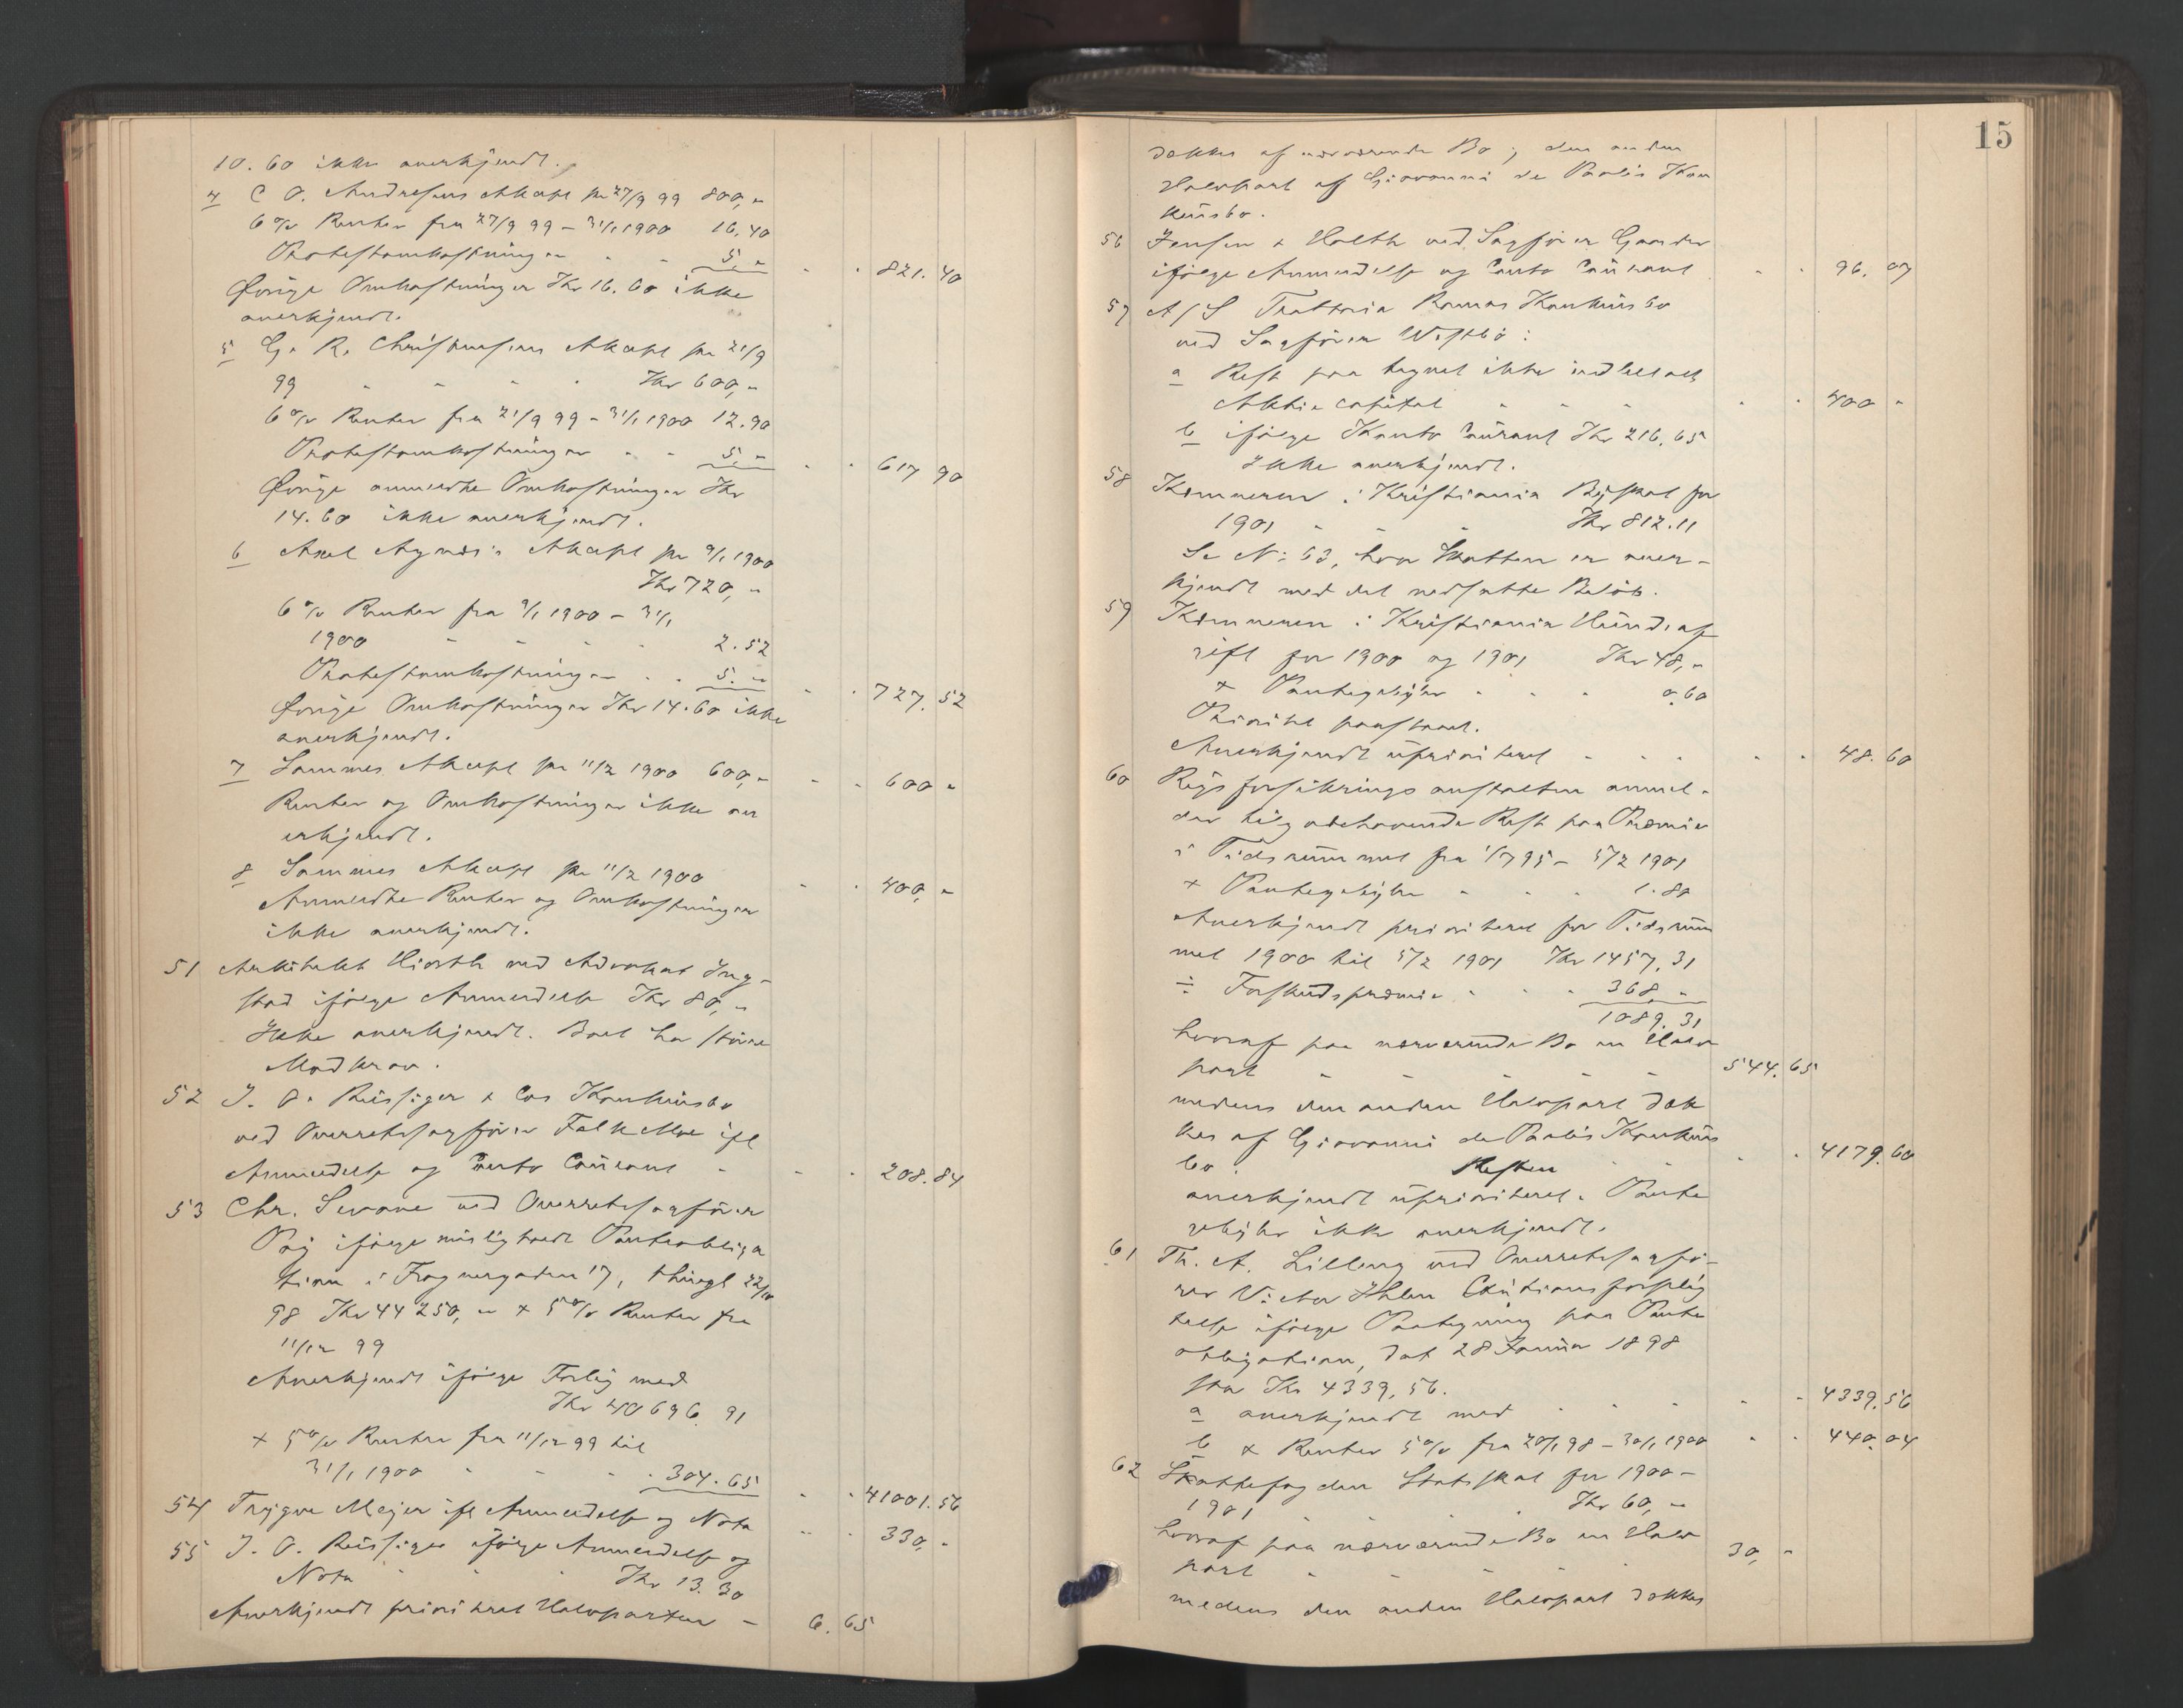 10.60 ikke anerkjendt.
4 C O. Andresens Akcept pr 27/9 99 800,"
6 % Renter fra 27/9 99 - 31/1 1900 16.40
Protestomkostninger - - 5. " - - 821.40
Øvrige Omkostninger Kr 16.60 ikke
anerkjendt.
5 G. R. Christensens Akcept pr 21/9
99 - - - - Kr 600,"
6 % Renter fra 21/9 99 - 31/1 1900 12.90
Protestomkostninger - - 5. " - - 617 90
Øvrige anmeldte Omkostninger Kr
14.60 ikke anerkjendt.
6 Axel Akcept pr 9/1 1900
Kr 720,"
6 % Renter fra 9/1 1900 - 31/1
1900 - - - - 2.52
Protestomkostninger - - 5. " - - 727.52
Øvrige Omkostninger Kr 14.60 ikke
anerkjendt.
7 Sammes Akcept pr 11/2 1900 600," - - 600 "
Renter og Omkostninger ikke an
erkjendt.
8 Sammes Akcept pr 11/2 1900 - - 400, "
Anmeldte Renter og Omkostninger
ikke anerkjendt.
51 Arkitekt Hiorth ved Advokat Ing-
stad ifølge Anmeldelse Kr 80,"
Ikke anerkjendt. Boet har større
Modkrav.
52 J. O. Reissiger & Cos Konkursbo
ved Overretssagfører Falk Moe ifl
Anmeldelse og Conto Courant - - - 208.84
53 Chr. ved Overretssagfører
ifølge misligholdt Panteobliga
tion i Frognergaden 17, thinegl 22/10
98 Kr 44250," + 5 % Renter fra
11/12 99
Anerkjendt ifølge Forlig med
Kr 40696.91
+ 5 % Renter fra 11/12 99 til
31/1 1900 - - - - 304.65 - - 41001.56
54 Trygve Mejer ifl Anmeldelse og Nota - - 330, -
55 J. O. Reissiger ifølge Anmeldelse og
Nota - - - Kr 13.30
Anerkjendt prioriteret Halvparten - 6.65
15
dækkes af nærværende Bo; den anden
Halvpart af Giovanni de Paolis Kon
kursbo.
56 Jensen & Holth ved Sagfører Gaarder
ifølge Anmeldelse og Conto Courant - - 96.07
57 A/S Trattoria Romas Konkursbo
ved Sagfører Westbø:
a Rest paa tegnet ikke indbetalt
Aktie Capital - - - - - 400 "
b ifølge Konto Courant Kr 216.65
Ikke anerkjendt.
58 Kemneren i Kristiania Byskat for
1901 - - - Kr 812.11
Se N: 63, hvor Skatten er aner-
kjendt med det nedsatte Beløb.
59 Kemneren i Kristiania Hundeaf
gift for 1900 og 1901 Kr 48,"
+ Pantegebyr - - - 0.60
Prioritet paastaaet.
Anerkjendt uprioriteret - - - - - 48.60
60 Rigsforsikringsanstalten anmel-
der tilgodehavende Rest paa Præmie
i Tidsrummet fra 1/7 95 - 5/2 1901
+ Pantegebyr - - - 1.80
Anerkjendt prioriteret for Tidsrum
met 1900 til 5/2 1901 Kr 1457.31
÷ Forskudspræmie - - - 368. "
1089.31
hvoraf paa nærværende Bo en Halv
part - - - - - 544.65
medens den anden Halvpart dæk
kes af Giovanni de Paolis Konkurs
bo. Resten - - - 4179.60
anerkjendt uprioriteret. Pante
gebyr ikke anerkjendt.
61 Th. A. Lilleng ved Overretssagfø-
rer Victor Ihlen Cautionsforplig
telse ifølge Paategning paa Pante
obligation, dat 28 Januar 1898
stor Kr 4339,56.
a anerkjendt med - - - - - 4339.56
b + Renter 5 % fra 20/1 98 - 30/1 1900 - - 440.04
62 Skattefogden Statsskat for 1900-
1901 - - Kr 60,"
hvoraf paa nærværende Bo en Halv
part - - - - 30, "
medens den anden Halvpart dækkes